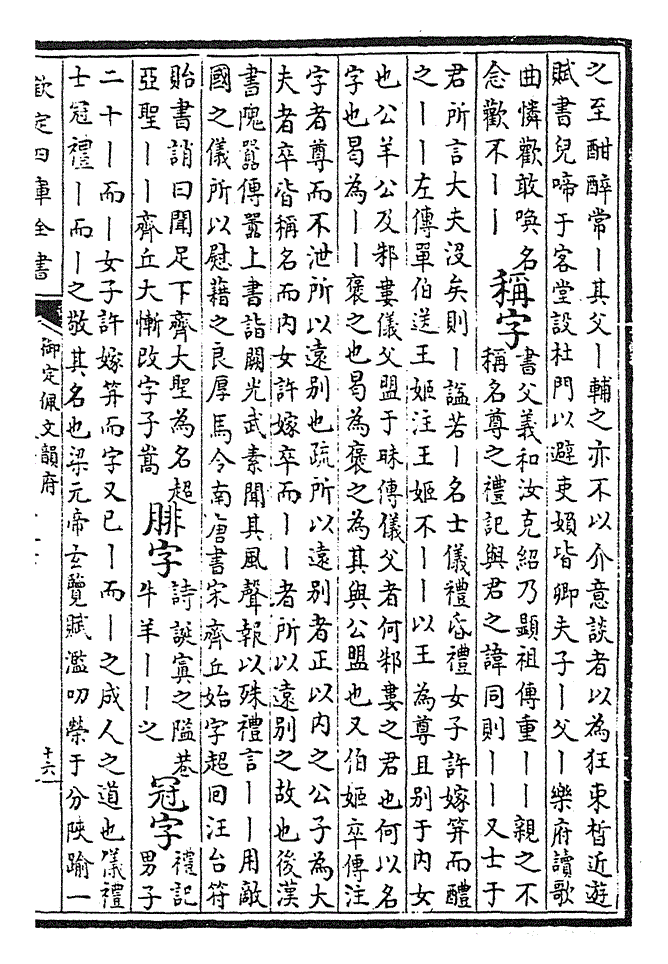 之至酣醉常丨其父丨輔之亦不以介意談者以為狂束晳近遊
賦書兒啼于客堂設杜門以避吏媍皆卿夫子丨父丨樂府讀歌
曲憐歡敢喚名
念歡不丨丨
稱字
書父義和汝克紹乃顯祖傳重丨丨親之不
稱名尊之禮記與君之諱同則丨丨又士于
君所言大夫没矣則丨謚若丨名士儀禮昏禮女子許嫁笄而醴
之丨丨左傳單伯送王姬注王姬不丨丨以王為尊且别于内女
也公羊公及邾婁儀父盟于昧傳儀父者何邾婁之君也何以名
字也曷為丨丨褒之也曷為褒之為其與公盟也又伯姬卒傳注
字者尊而不泄所以遠别也疏所以遠别者正以内之公子為大
夫者卒皆稱名而内女許嫁卒而丨丨者所以遠别之故也後漢
書隗囂傳囂上書詣闕光武素聞其風聲報以殊禮言丨丨用敵
國之儀所以慰藉之良厚馬令南唐書宋齊丘始字超囘汪台符
貽書誚曰聞足下齊大聖為名超
亞聖丨丨齊丘大慚改字子嵩
腓字
詩誕寘之隘巷
牛羊丨丨之
冠字
禮記
男子
二十丨而丨女子許嫁笄而字又已丨而丨之成人之道也儀禮
士冠禮丨而丨之敬其名也梁元帝玄覽賦濫叨榮于分陜踰一
欽定四庫全書
御定佩文韻府
十六